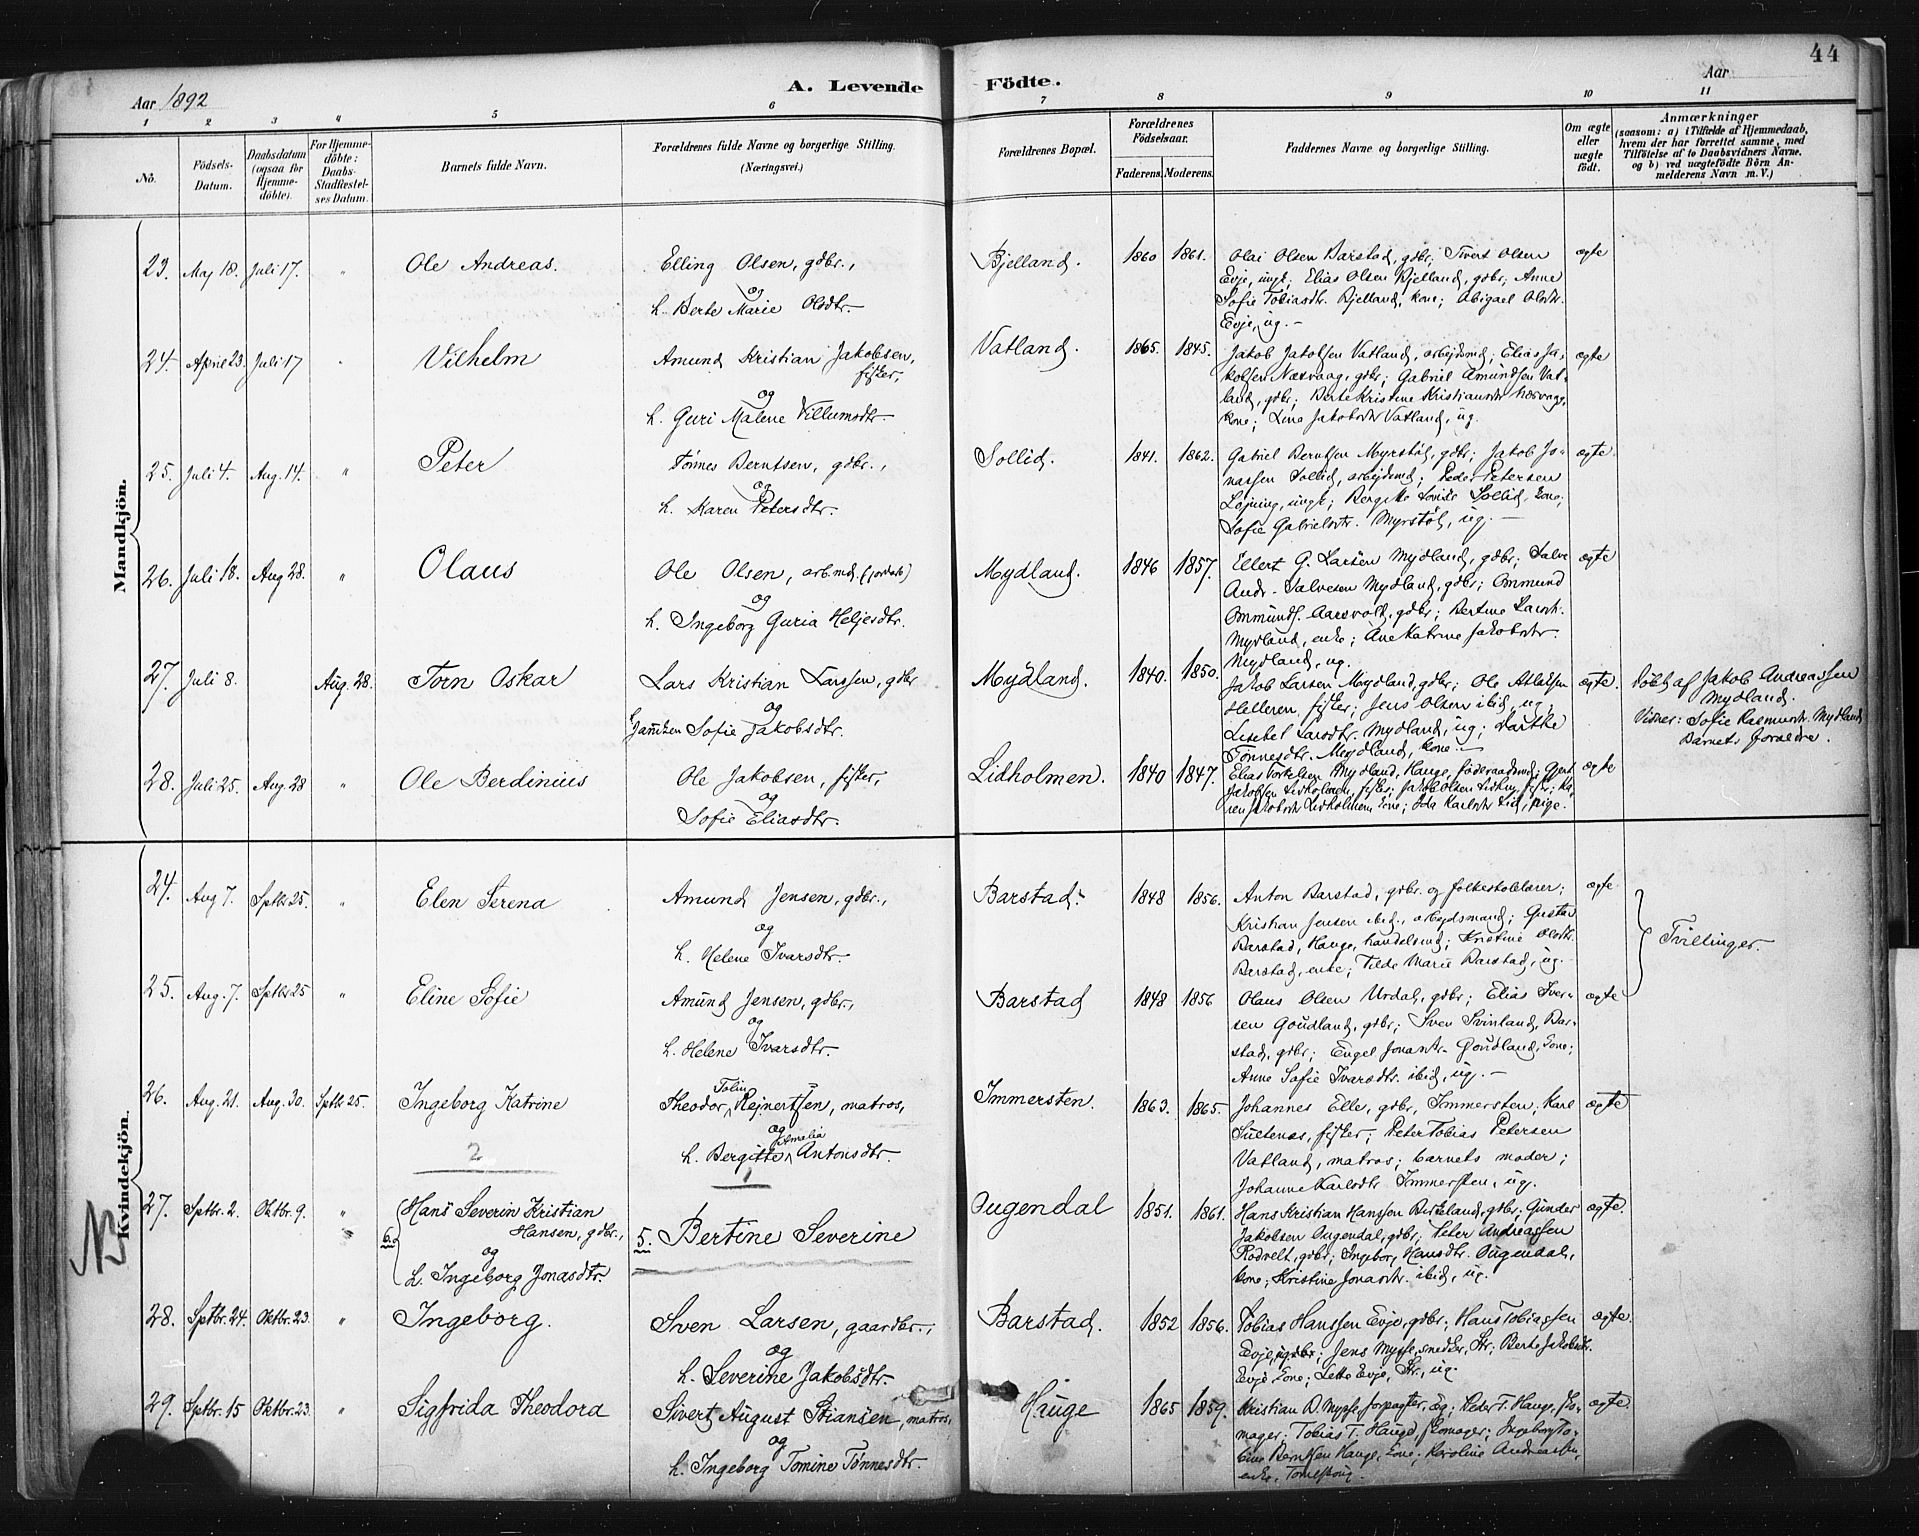 44
Aar 1892
A. Levende Födte.
Aar
1 2 3 4 5 6 7 8 9 10 11
No.
Födsels-Datum.
Daabsdatum (ogsaa for Hjemme-döbte).
For Hjemme-döbte: Daabs-Stadfæstel-ses Datum.
Barnets fulde Navn.
Forældrenes fulde Navne og borgerlige Stilling. (Næringsvei.)
Forældrenes Bopæl.
Forældrenes Födselsaar.
Faderens. Moderens.
Faddernes Navne og borgerlige Stilling.
Om ægte eller uægte födt.
Anmærkninger
(saasom: a) i Tilfælde af Hjemmedaab,
hvem der har forrettet samme, med
Tilföielse af to Daabsvidners Navne,
og b) ved uægtefödte Börn An-
melderens Navn m. V.)
Mandkjön.
23. Maj 18. Juli 17. " Ole Andreas. Elling Olsen, gdbr., og h. Berte Marie Olsdtr. Bjelland. 1860 1861. ægte
Olai Olsen Barstad, gdbr; Sivert Olsen
Evje, ungk; Elias Olsen Bjelland, gdbr; Anne
Sofie Tobiasdtr. Bjelland, kone; Abigael Olsdtr.
Evje, ug. -
24. April 23. Juli 17 " Vilhelm Amund Kristian Jakobsen, fisker, og h. Guri Malene Villumsdtr. Vatland. 1865. 1845. ægte
Jakob Jakobsen Vatland, arbejdsmd; Elias Ja-
kobsen Næsvaag, gdbr; Gabriel Amundsen Vat-
land, gdbr; Berte Kristine Kristiansdtr Næsvaag,
kone; Line Jakobsdtr Vatland, ug.
25. Juli 4. Aug. 14. " Peter Tönnes Berntsen, gdbr., og h. Karen Petersdtr. Sollid. 1841. 1862. ægte.
Gabriel Berntsen Myrstøl, gdbr; Jakob Jo-
nassen Sollid, arbejdsmd; Peder Petersen
Løjning, ungk; Bergitte Lovise Sollid, kone;
Sofie Gabrielsdtr. Myrstøl, ug. -
26. Juli 18. Aug 28. " Olaus Ole Olsen, arb.md. (jordarb) og h. Ingeborg Guria Heljesdtr. Mydland. 1846 1857. ægte
Ellert G. Larsen Mydland, gdbr; Salve
Andr. Salvesen Mydland, gdbr; Ommund
Ommunds. Aarsvold, gdbr; Bertine Larsdtr.
Mydland, enke; Ane Katrine Jakobsdtr.
Mydland, ug.
27. Juli 8. Aug. 28. Torn Oskar Lars Kristian Larssen, gdbr og h. Sofie Jakobsdtr. Mydland. 1840. 1850. ægte.
Jakob Larsen Mydland, gdbr; Ole Atlaksen
Helleren, fisker; Jens Olsen ibid, ug.
Lisebet Larsdtr. Mydland, ug; Marthe
Tønnesdtr. Mydland, kone. -
Døbt af Jakob Andreassen
Mydland.
Vidner: Sofie Rasmusdr. Mydland
Barnets forældre.
28. Juli 25. Aug 28 " Ole Berdinius Ole Jakobsen, fisker, og Sofie Eliasdtr. Lidholmen. 1840 1847. ægte
Elias Torkelsen Mydland, Hauge, føderaadsmd; Gjert
Jakobsen Lidholmen, fisker; Jakob Olsen Lidholm, fisker; Ka-
ren Jakobsdtr Lidholmen, kone; Ida Karlsdtr Lid, pige.
Kvindekjön.
24. Aug 7. Sptbr 25. " Elen Serena Amund Jensen, gdbr., og h. Helene Ivarsdtr. Barstad. 1848 1856. ægte
Anton Barstad, gdbr. og folkeskolelærer;
Kristian Jensen ibid., arbejdsmand; Gustav
Barstad, Hauge, handelsmd; Kristine Olsdtr.
Barstad, enke; Tilde Marie Barstad, ug. -
Tvillinger.
25. Aug. 7. Sptbr 25 " Eline Sofie Amund Jensen, gdbr., og h. Helene Ivarsdtr. Barstad 1848 1856 ægte
Olaus Olsen Urdal, gdbr; Elias Iver-
sen Goudland, gdbr; Sven Svinland, Bar-
stad, gdbr; Engel Jonasdtr. Goudland, kone;
Anne Sofie Ivarsdtr. ibid, ug. -
26. Aug. 21. Aug. 30. Sptbr 25. Ingeborg Katrine Theodor Tolin Rejnertsen, matros, og h. Bergitte Amalia Antonsdtr. Immersten. 1863. 1865. ægte
Johannes Elle, gdbr, Immersten; Karl
Sultenas, fisker; Peter Tobias Petersen
Vatland, matros; barnets moder;
Johanne Karlsdtr Immersten, ug.
2 1
NB
27. Sptbr. 2. Oktbr. 9. " 6. Hans Severin Kristian Hansen, gdbr., og h. Ingeborg Jonasdtr. 5. Bertine Severine Ougendal 1851. 1861. ægte.
Hans Kristian Hanssen Birkeland, gdbr; Gunder
Jakobsen Ougendal, gdbr; Peter Andreassen
Rodvelt, gdbr; Ingeborg Hansdtr. Ougendal,
kone; Kristine Jonasdtr. ibid, ug.
28. Sptbr. 24. Oktbr. 23. " Ingeborg. Sven Larsen, gaardbr., og h. Severine Jakobsdtr. Barstad. 1852 1856. ægte.
Tobias Hanssen Evje, gdbr; Hans Tobiassen
Evje, gdbr; Jens Mysse, snedker, Str; Berte Jakobsdtr.
Evje kone; Lette Evje, Str, ug.
29. Sptbr. 15 Oktbr. 23. " Sigfrida Theodora Sivert August Stiansen, matros, og h. Ingeborg Tomine Tønnesdtr. Hauge 1865 1859. ægte.
Kristian B. Mysse, forpagter, Aa; Peder T. Hauge, sko-
mager; Tobias T. Hauge, skomager; Ingeborg To-
bine Berntsen Hauge, kone; Karoline Andreassen,
enke,